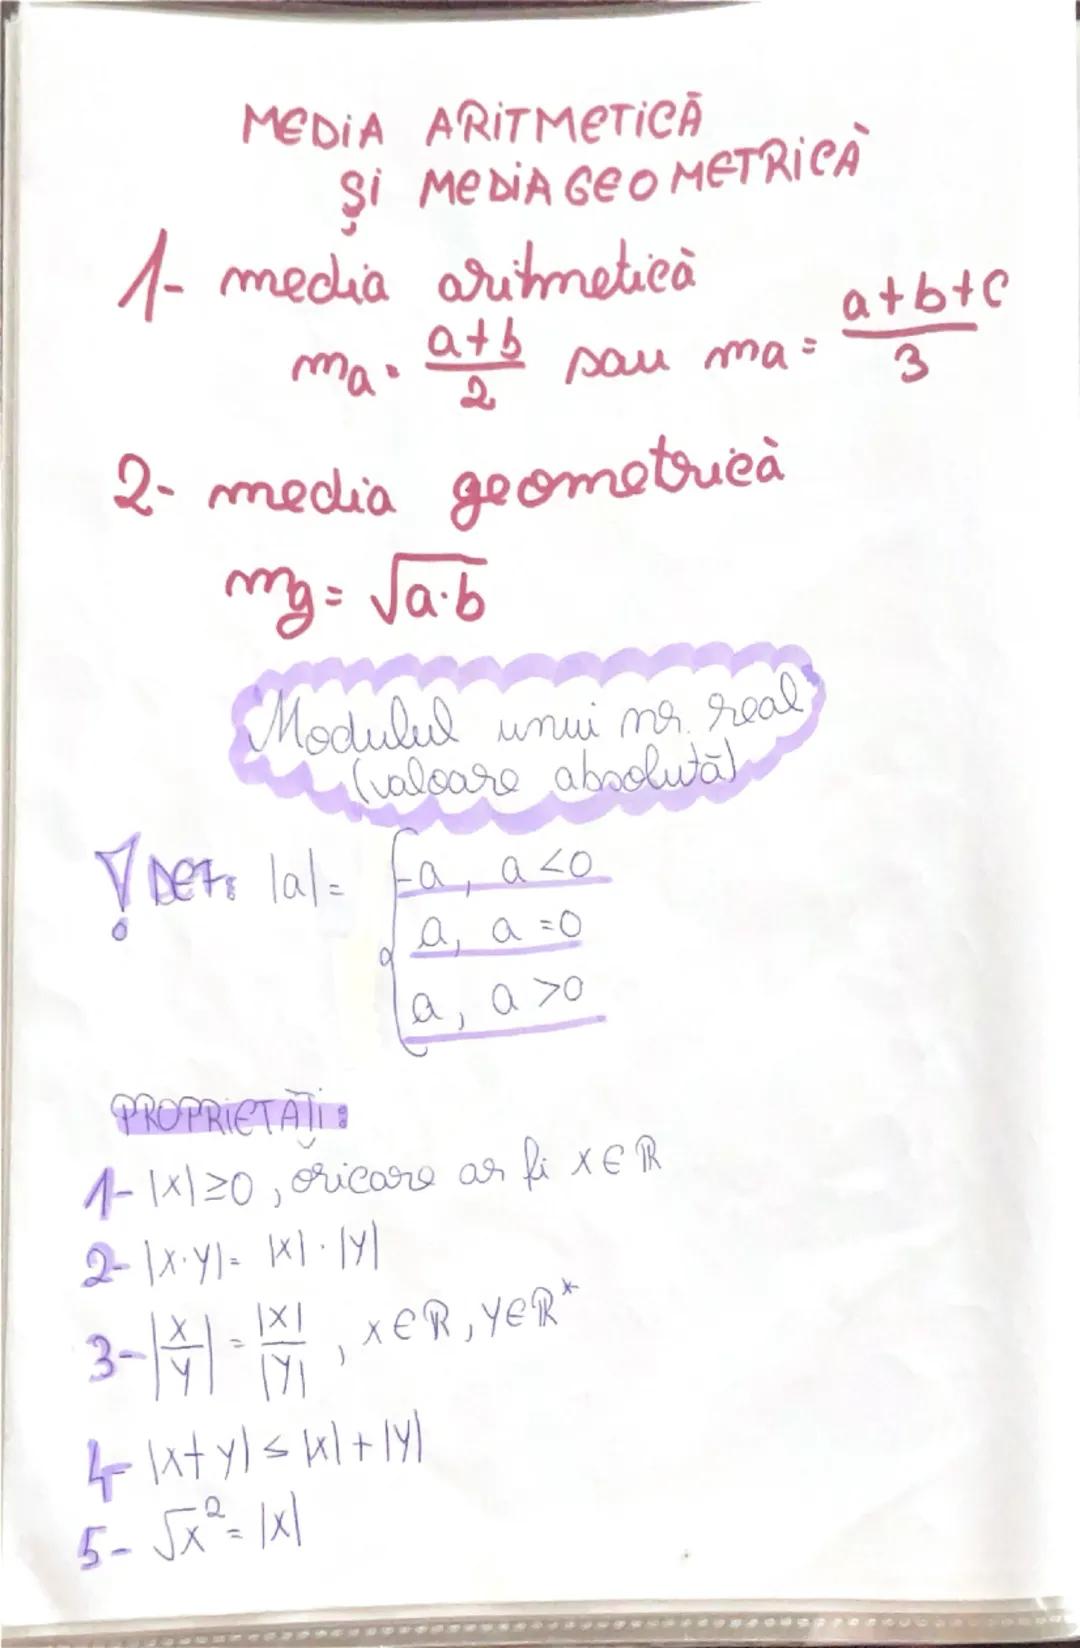 MEDIA ARITMETICĂ
ȘI MEDIA GEOMETRICĂ
1- media aritmetică
ma = a+b/2 sau ma = a+b+c/3
2- media geometrică
mg = √a·b
Modulul unui nr. real
(valoare absolută)
! DEF: |a| = { -a, a<0
a, a=0
a, a>0
PROPRIETĂȚI:
1- |x|≥0, oricare ar fi x∈ℝ
2- |x·y| = |x|·|y|
3- |x/y| = |x|/|y|, x∈ℝ, y∈ℝ*
4- |x+y| ≤ |x|+|y|
5- √x² = |x|